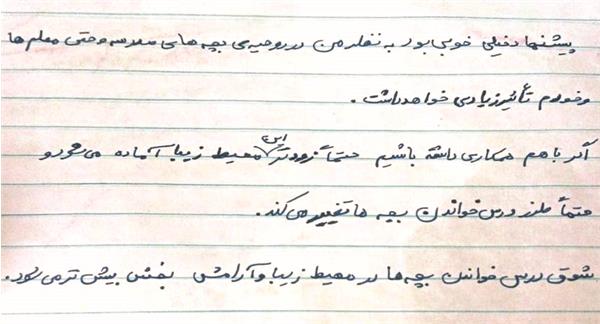 پیشنهاد خیلی خوبی بود به نظر من در روحیه‌ی بچه های مدرسه و حتی معلم ها
و خودم تأثیر زیادی خواهد داشت.
اگر با هم همکاری داشته باشیم حتماً زودتر این محیط زیبا آماده می‌شود و
حتماً طرز درس خواندن بچه ها تغییر می‌کند.
شوق درس خواندن بچه‌ها در محیط زیبا و آرامش بخش بیش تر می‌شود.